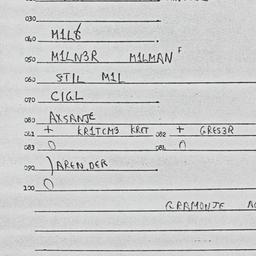 030
040 MILŚ
050 M1LN3R M1LMAN F
060 STIL M1L
070 CIGL
080 AXSANJE
081 + KR1TCM3 KRIT 082 + GRES3R
083 0 084 0
090 )AREN,DER
100 0
GRAMONJE